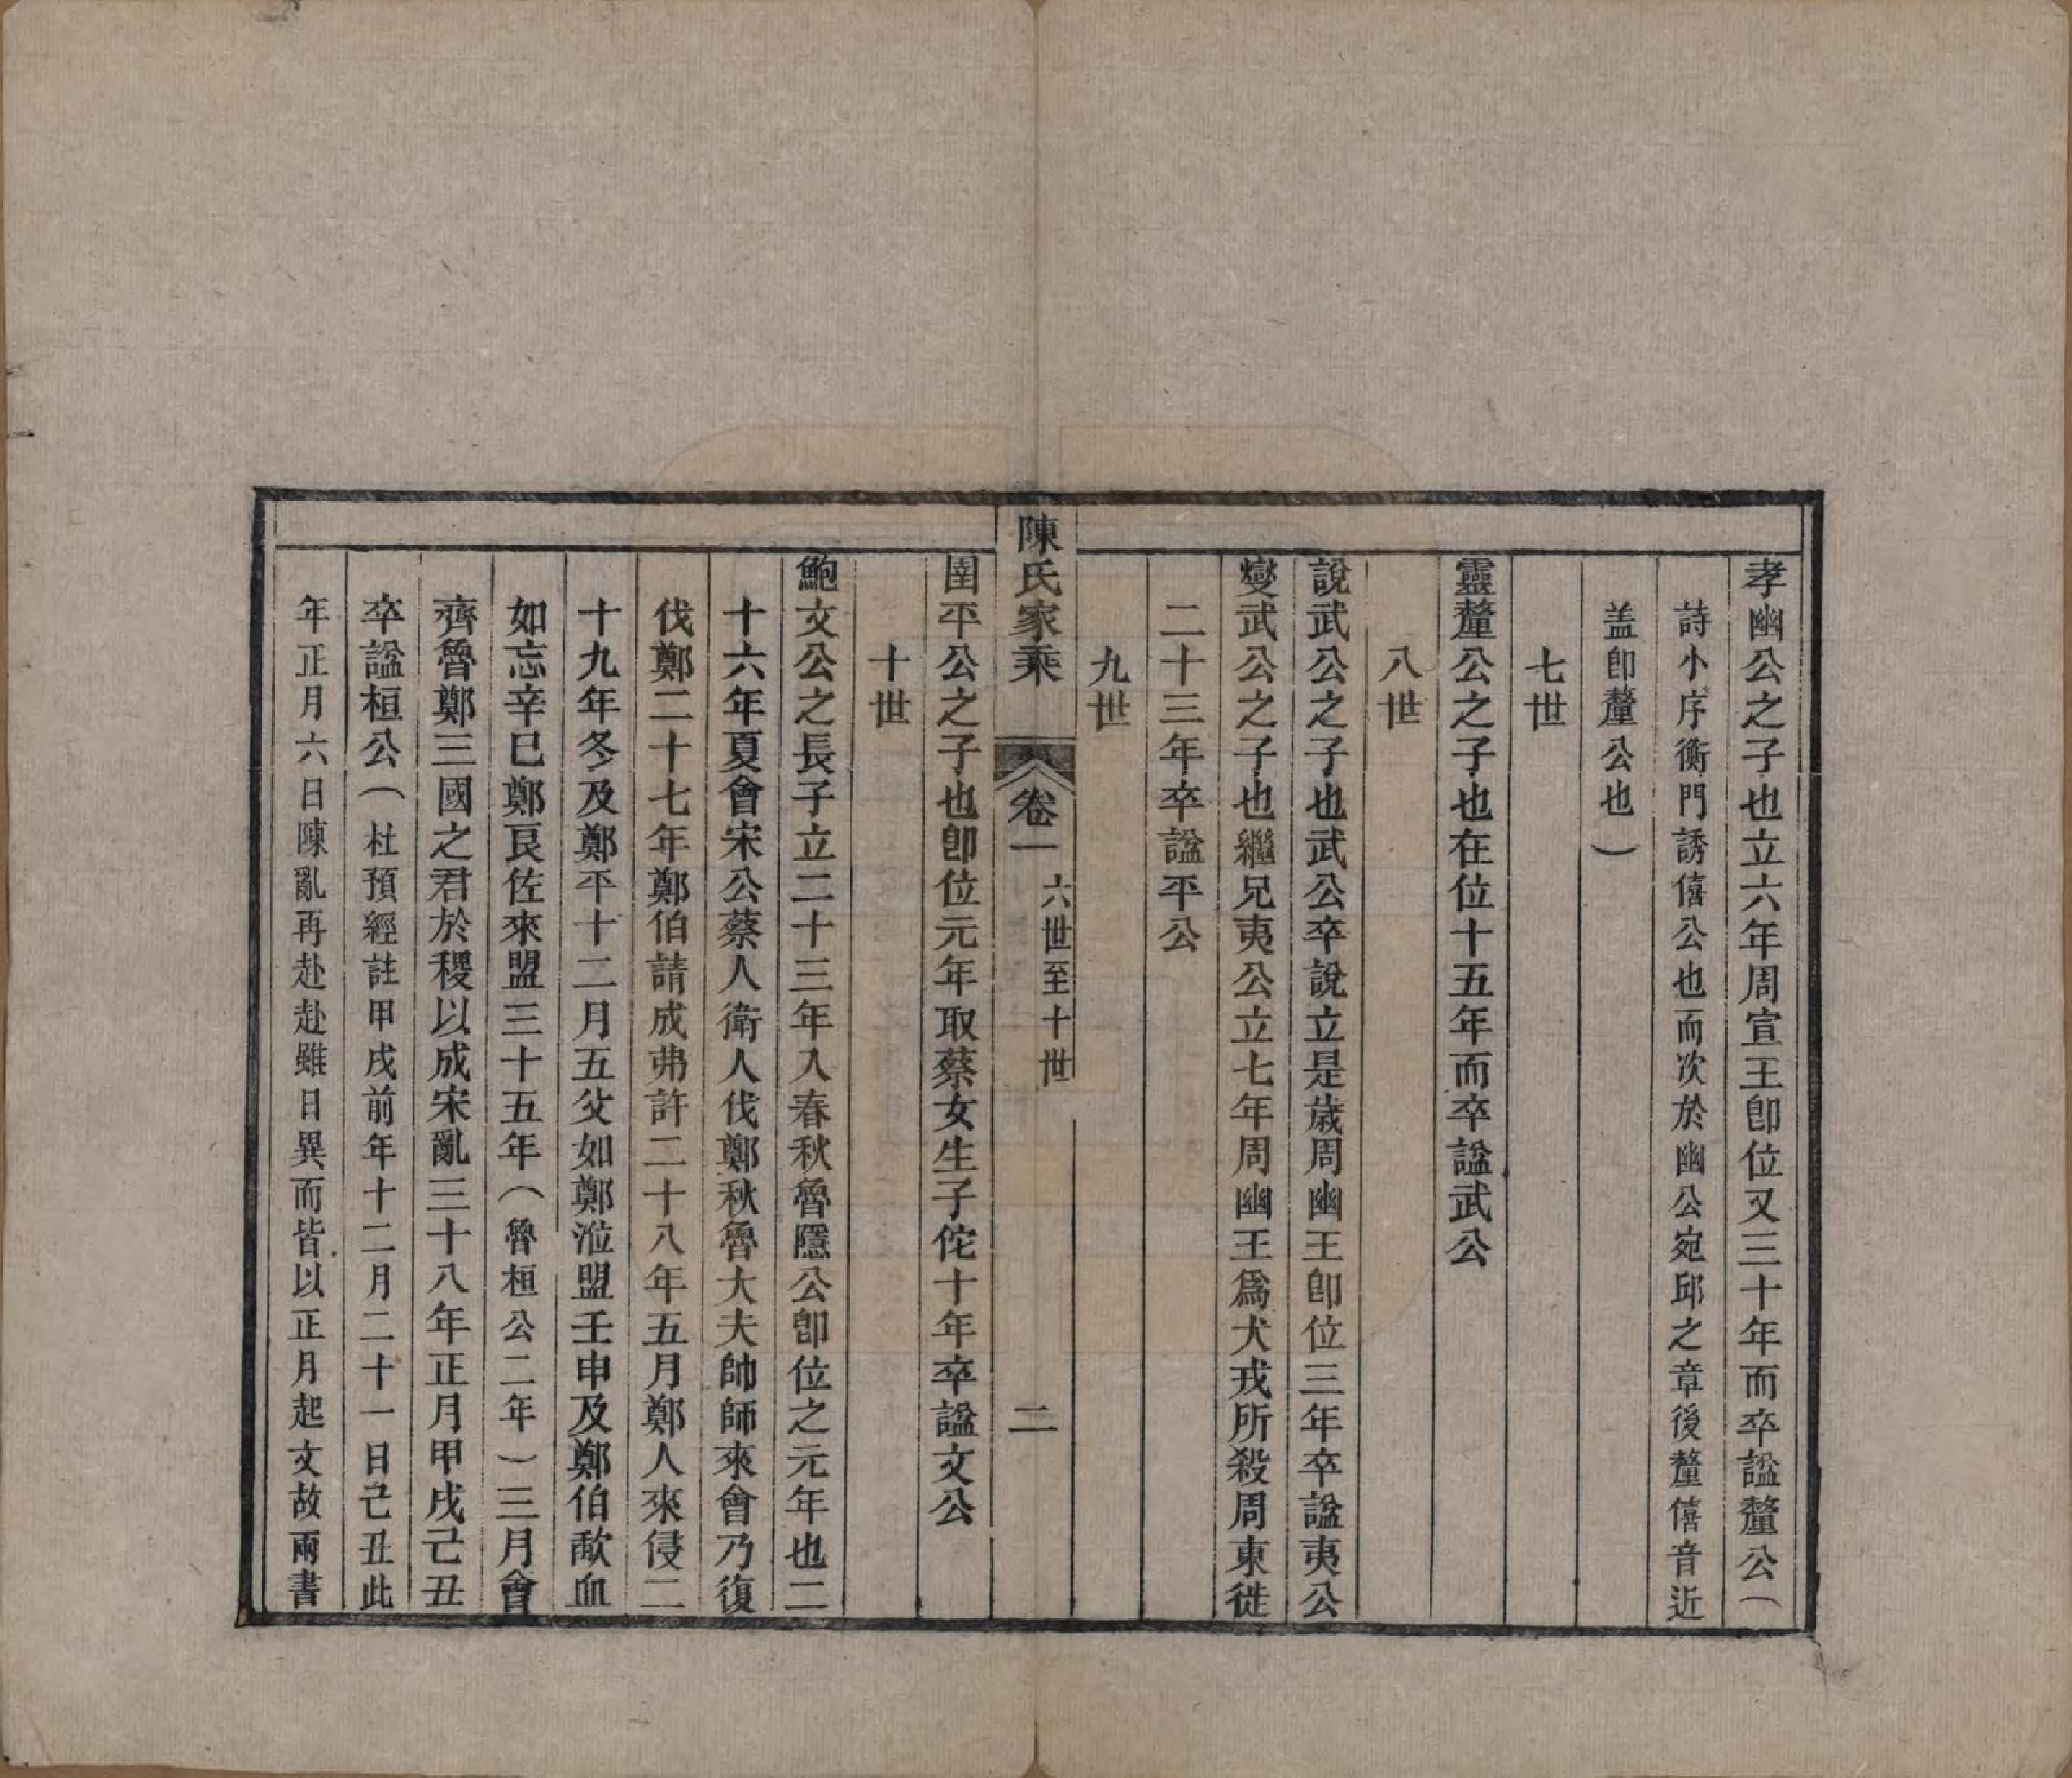 孝幽公之子也立六年周宣王卽位又三十年而卒諡釐公(
詩小序衡門誘僖公也而次於幽公宛邱之章後釐僖音近
盖卽釐公也)
七世
靈釐公之子也在位十五年而卒諡武公
八世
說武公之子也武公卒說立是歲周幽王卽位三年卒諡夷公
燮武公之子也繼兄夷公立七年周幽王爲犬戎所殺周東徙
二十三年卒諡平公
九世
陳氏家乘
卷一
六世至十世
二
圉平公之子也卽位元年取蔡女生子佗十年卒諡文公
十世
鮑文公之長子立二十三年入春秋魯隱公卽位之元年也二
十六年夏會宋公蔡人衛人伐鄭秋魯大夫帥師來會乃復
伐鄭二十七年鄭伯請成弗許二十八年五月鄭人來侵二
十九年冬及鄭平十二月五父如鄭涖盟壬申及鄭伯歃血
如忘辛巳鄭良佐來盟三十五年(魯桓公二年)三月會
齊魯鄭三國之君於稷以成宋亂三十八年正月甲戌己丑
卒諡桓公(杜預經註甲戌前年十二月二十一日己丑此
年正月六日陳亂再赴赴雖日異而皆以正月起文故兩書